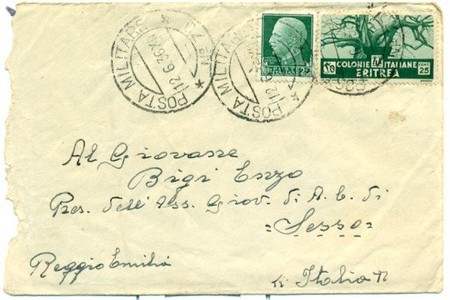 POSTA MILITARE
12.6.36.XIV
POSTA MILITARE
12.6
ITALIANE
COLONIE ITALIANE
ERITREA
25
Al Giovane
Bigi Enzo
Pres. dell'Ass. Giov. di A.C. di
Sesso
Reggio Emilia
Italia